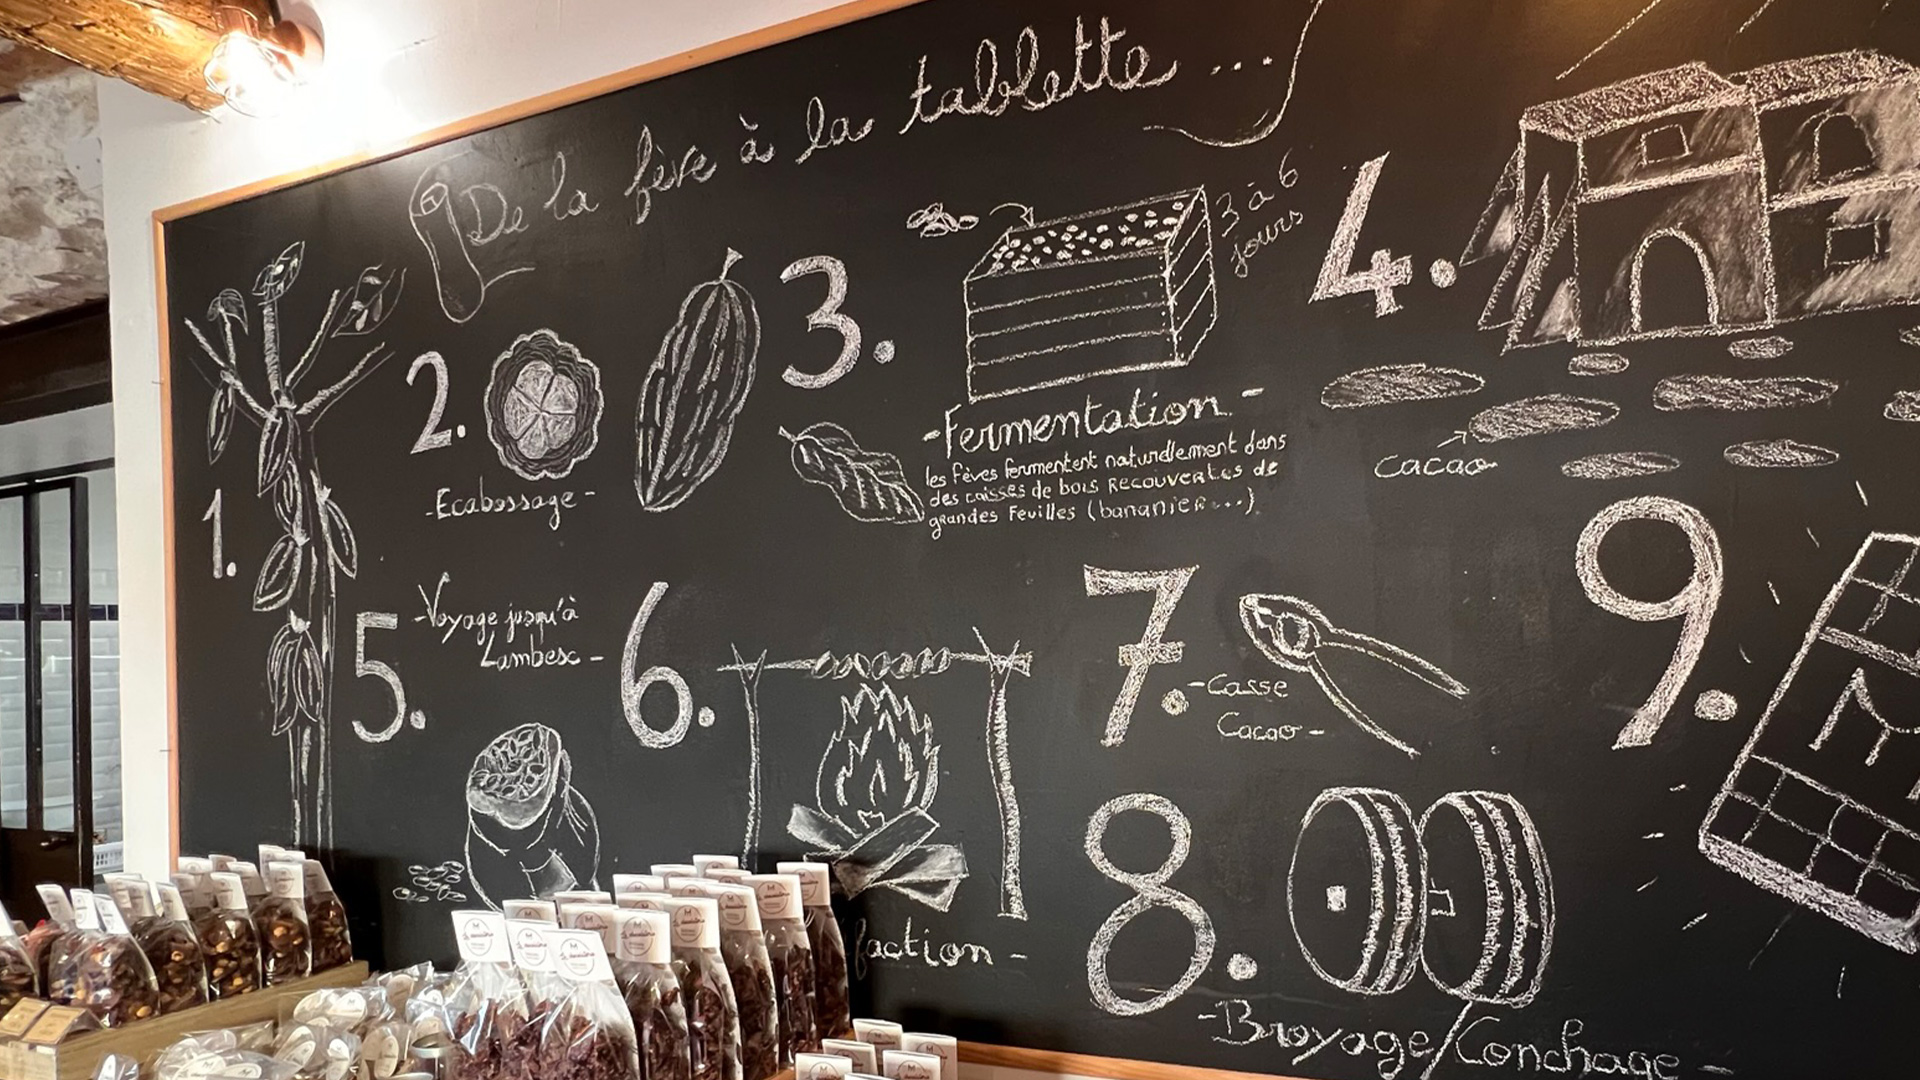 De la fève à la tablette ...
1.
2.
-Ecabossage-
3.
3 à 6
jours
-Fermentation-
les fèves fermentent naturellement dans
des caisses de bois recouvertes de
grandes feuilles (bananier...)
4.
cacao
5.
-Voyage jusqu'à
Lambesc-
6.
faction-
7.
-Casse
Cacao-
8.
-Broyage/Conchage-
9.